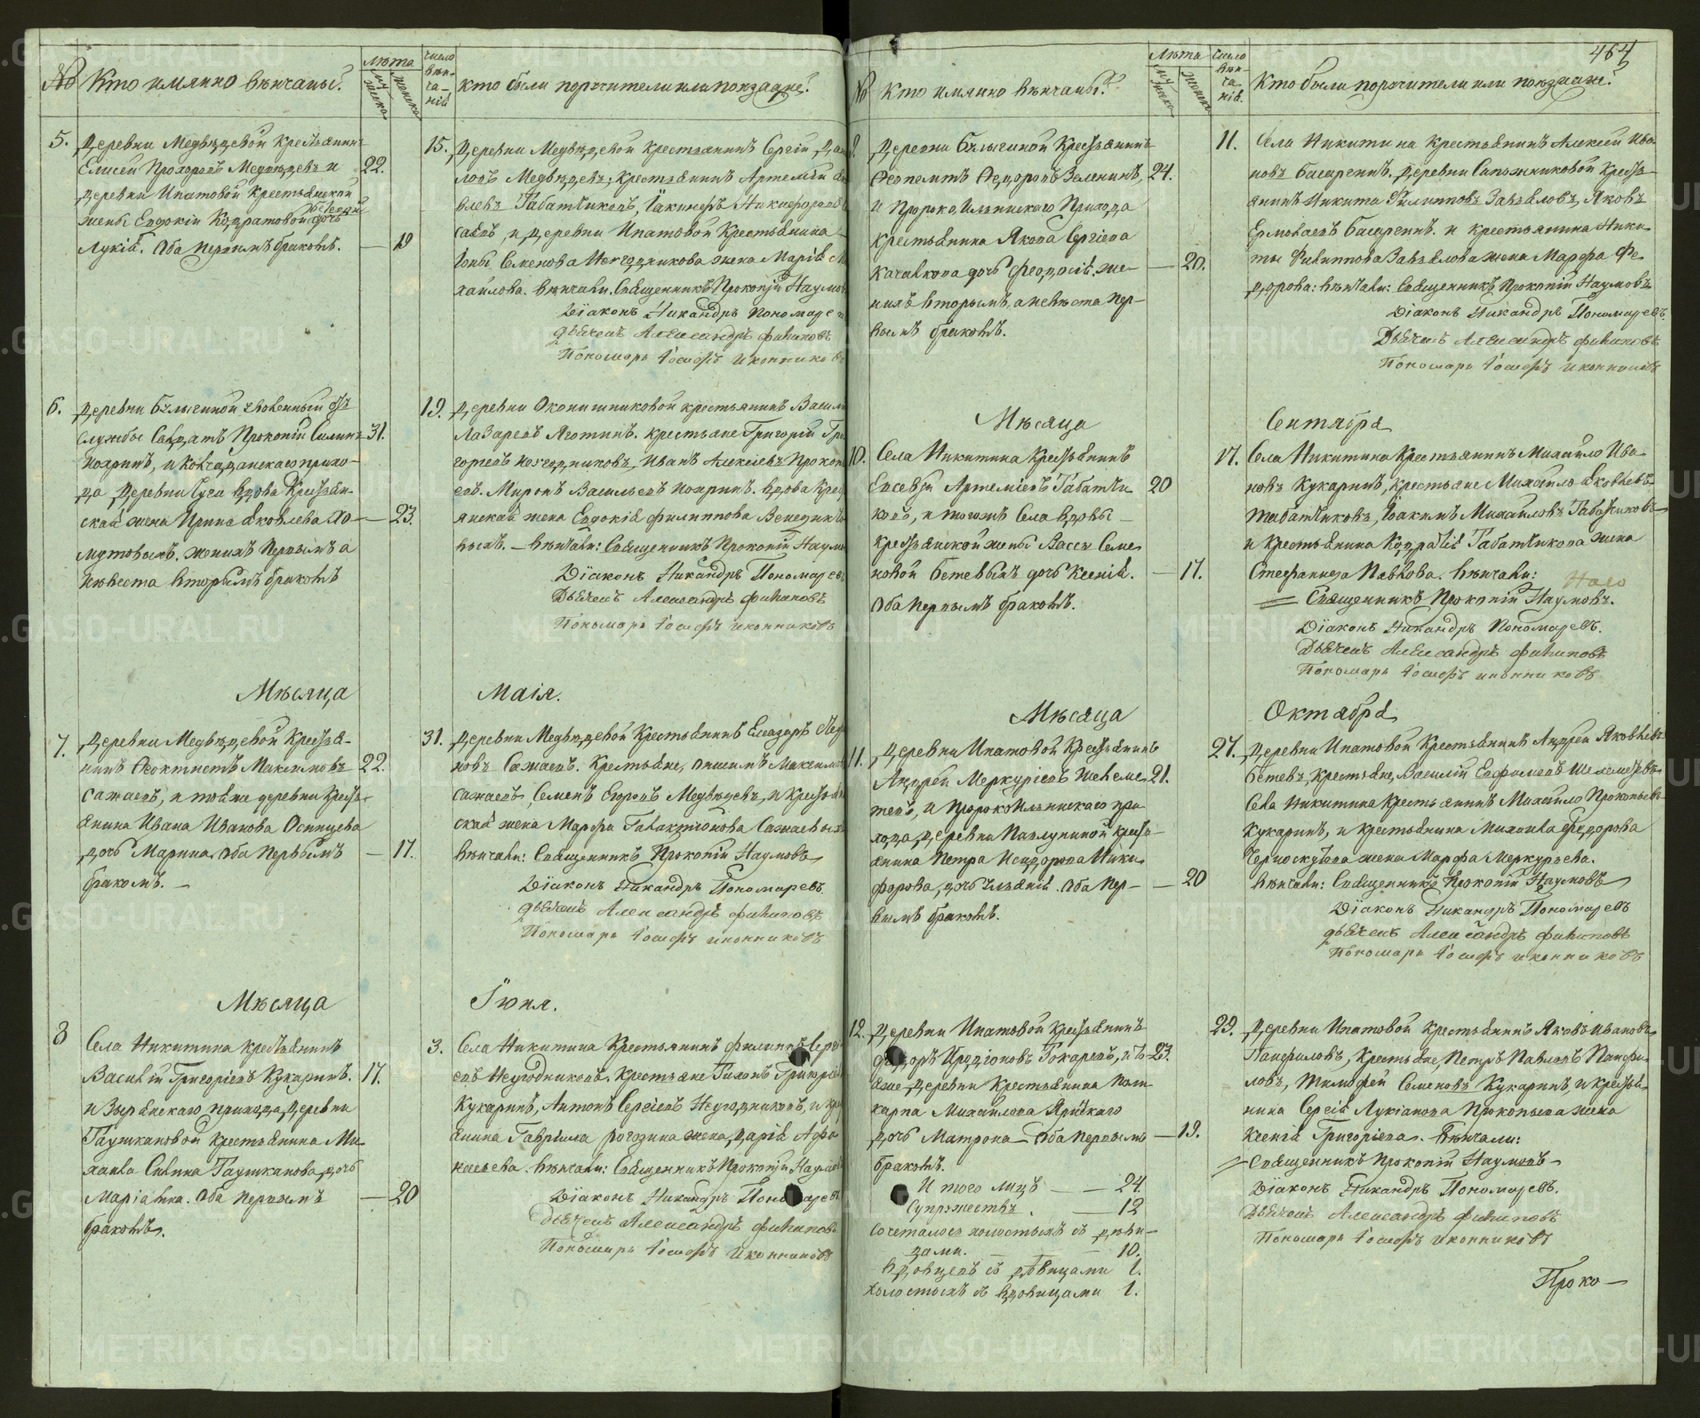 № Кто имянно вѣнчаны?
лѣта
мужеска
женска
число
вѣн-
ча-
нiй.
кто были поручители или поѣзжане?
5. Деревни Медвѣдевой Крестьянинъ
Елисей Прохоровъ Медвѣдевъ и 22.
деревни Ипатовой Крестьянской
жены Евдокiи Кодратовой дочь
Лукiя. Оба первымъ бракомъ. — 19
15. Деревни Медвѣдевой крестьянинъ Сергiй
ловъ Медвѣдевъ; крестьянинъ Артемiй
Табатчиковъ, Iакинфъ Никифоровъ
и деревни Ипатовой Крестьянина
Iоны Семенова Негодникова жена Марiя
хаилова. вѣнчали: Священникъ Прокопiй Наумовъ
Дiаконъ Никандръ Пономаревъ
Дьячекъ Александръ Филиповъ
Пономарь Iосифъ Иконниковъ
6. Деревни Былыгиной уволенный отъ
службы Салдатъ Прокопiй Силинъ 31.
Ноздринъ, и прихо-
да деревни вдова Крестьян-
ская жена Ирина Яковлева До- — 23.
мутовыхъ. женихъ первымъ а
невѣста вторымъ бракомъ
19. Деревни Оконишниковой крестьянинъ Васи
Лазаревъ Яготинъ. крестьяне Григорiй
горьевъ Негодниковъ, Иванъ Алексiевъ
Миронъ Васильевъ вдова
янская жена Евдокiя Филиппова
выхъ. — вѣнчали: Священникъ Прокопiй Наумо
Дiаконъ Никандръ Пономаревъ
Дьячекъ Александръ Филиповъ
Пономарь Iосифъ Иконниковъ
Мѣсяца Маiя.
7. Деревни Медвѣдевой Крестья-
нинъ Феоктистъ Максимовъ 22.
Сажаевъ, и тояже деревни Кресть-
янина Ивана Иванова Осинцева
дочь Марина. Оба первымъ — 17.
бракомъ. —
31. Деревни Медвѣдевой Крестьянинъ Елеазаръ
новъ Сажаевъ. Крестьяне, Анисимъ Максимо
Сажаевъ, Семенъ Егоровъ Медвѣдевъ, и Кресть
ская жена Марфа Галактiонова Сажаевыхъ
вѣнчали: Священникъ Прокопiй Наумовъ
Дiаконъ Никандръ Пономаревъ
Дьячекъ Александръ Филиповъ
Пономарь Iосифъ Иконниковъ
Мѣсяца Iюня.
8 Села Никитина Крестьянинъ
Василiй Григорiевъ Кукаринъ. 17.
и Зырянскаго прихода деревни
Галушкановой Крестьянина Ми-
хаила Савина Галушканова дочь
Марiамна. Оба первымъ — 20
бракомъ.
3. Села Никитина Крестьянинъ Филиппъ
евъ Неугодниковъ. Крестьяне Тихонъ Григорiе
Кукаринъ, Антонъ Сергiевъ Неугодниковъ, и кре
янина Гаврiила рогозина жена Дарiя Афа
насьева. вѣнчали: Священникъ Прокопiй Наумовъ
Дiаконъ Никандръ Пономаревъ
Дьячекъ Александръ Филиповъ
Пономарь Iосифъ Иконниковъ
464
№ Кто имянно вѣнчаны?
лѣта
мужеска
женска
число
вѣн-
ча-
нiй.
Кто были поручители или поѣзжане?
9. Деревни Былыгиной Крестьянинъ
Феопемптъ Федоровъ Зеленинъ, 24.
и Пророко Ильинскаго Прихода
крестьянина Якова Сергiева
Качалкова дочь Феодосiя. же- — 20.
нихъ вторымъ, а невѣста пер-
вымъ бракомъ.
11. Села Никитина Крестьянинъ Алексiй Ива-
новъ Басаренъ. Деревни Сапожниковой Кресть-
янинъ Никита Филипповъ Завьяловъ, Яковъ
Ермолаевъ и крестьянина Ники-
ты Филиппова Завьялова жена Марфа Фе-
дорова: вѣнчали: Священникъ Прокопiй Наумовъ
Дiаконъ Никандръ Пономаревъ
Дьячекъ Александръ Филиповъ
Пономарь Iосифъ Иконниковъ
Мѣсяца Сентября
10. Села Никитина Крестьянинъ
Евсевiй Артемiевъ Табатчи- 20
ковъ, и тогожъ Села вдовы
крестьянской жены Вассы Семе-
новой Бетевыхъ дочь Ксенiя. — 17.
Оба первымъ бракомъ.
17. Села Никитина Крестьянинъ Михайло Ива-
новъ Кукаринъ, крестьяне Михайло Яковлевъ
Табатчиковъ, Iоакимъ Михайловъ Табатчиковъ
и крестьянина Кодратiя Табатчикова жена
Стефанида Павлова. вѣнчали:
Священникъ Прокопiй Наумовъ.
Дiаконъ Никандръ Пономаревъ.
Дьячекъ Александръ Филиповъ
Пономарь Iосифъ Иконниковъ
Мѣсяца Октября
11. Деревни Ипатовой Крестьянинъ
Андрей Меркурiевъ Шеломе- 21.
тевъ, и Пророко Ильинскаго при-
хода, деревни Паклушиной кресть-
янина Петра Исидорова Ники-
форова, дочь Улiянiя. Оба пер- — 20
вымъ бракомъ.
27. Деревни Ипатовой Крестьянинъ Андрей Яковлевъ
Бетевъ, крестьяне, Василiй Евфимовъ Шелометевъ
Села Никитина Крестьянинъ Михайло Прокопьевъ
Кукаринъ, и крестьянина Михаила Федорова
Черноскутова жена Марфа Меркурьева.
вѣнчали: Священникъ Прокопiй Наумовъ
Дiаконъ Никандръ Пономаревъ
Дьячекъ Александръ Филиповъ
Пономарь Iосифъ Иконниковъ
12. Деревни Ипатовой Крестьянинъ
Федоръ Иродiоновъ Токаревъ, и то- 23.
яже деревни Крестьянина Поли-
карпа Михайлова Яруцкаго
дочь Матрона — Оба первымъ — 19.
бракомъ.
Итого лицъ — — 24
Супружествъ. — 12
Сочеталось холостыхъ съ дѣви-
цами. — — — 10.
вдовцевъ съ дѣвицами 1.
холостыхъ съ вдовицами 1.
29. Деревни Ипатовой Крестьянинъ Яковъ Ивановъ
Панфиловъ, Крестьяне, Петръ Павловъ Панфи-
ловъ, Тимофей Семеновъ Кукаринъ и крестья-
нина Сергiя Лукiанова Прокопьева жена
Ксенiя Григорьева. вѣнчали:
Священникъ Прокопiй Наумовъ
Дiаконъ Никандръ Пономаревъ.
Дьячекъ Александръ Филиповъ
Пономарь Iосифъ Иконниковъ
Проко-
METRIKI.GASO-URAL.RU